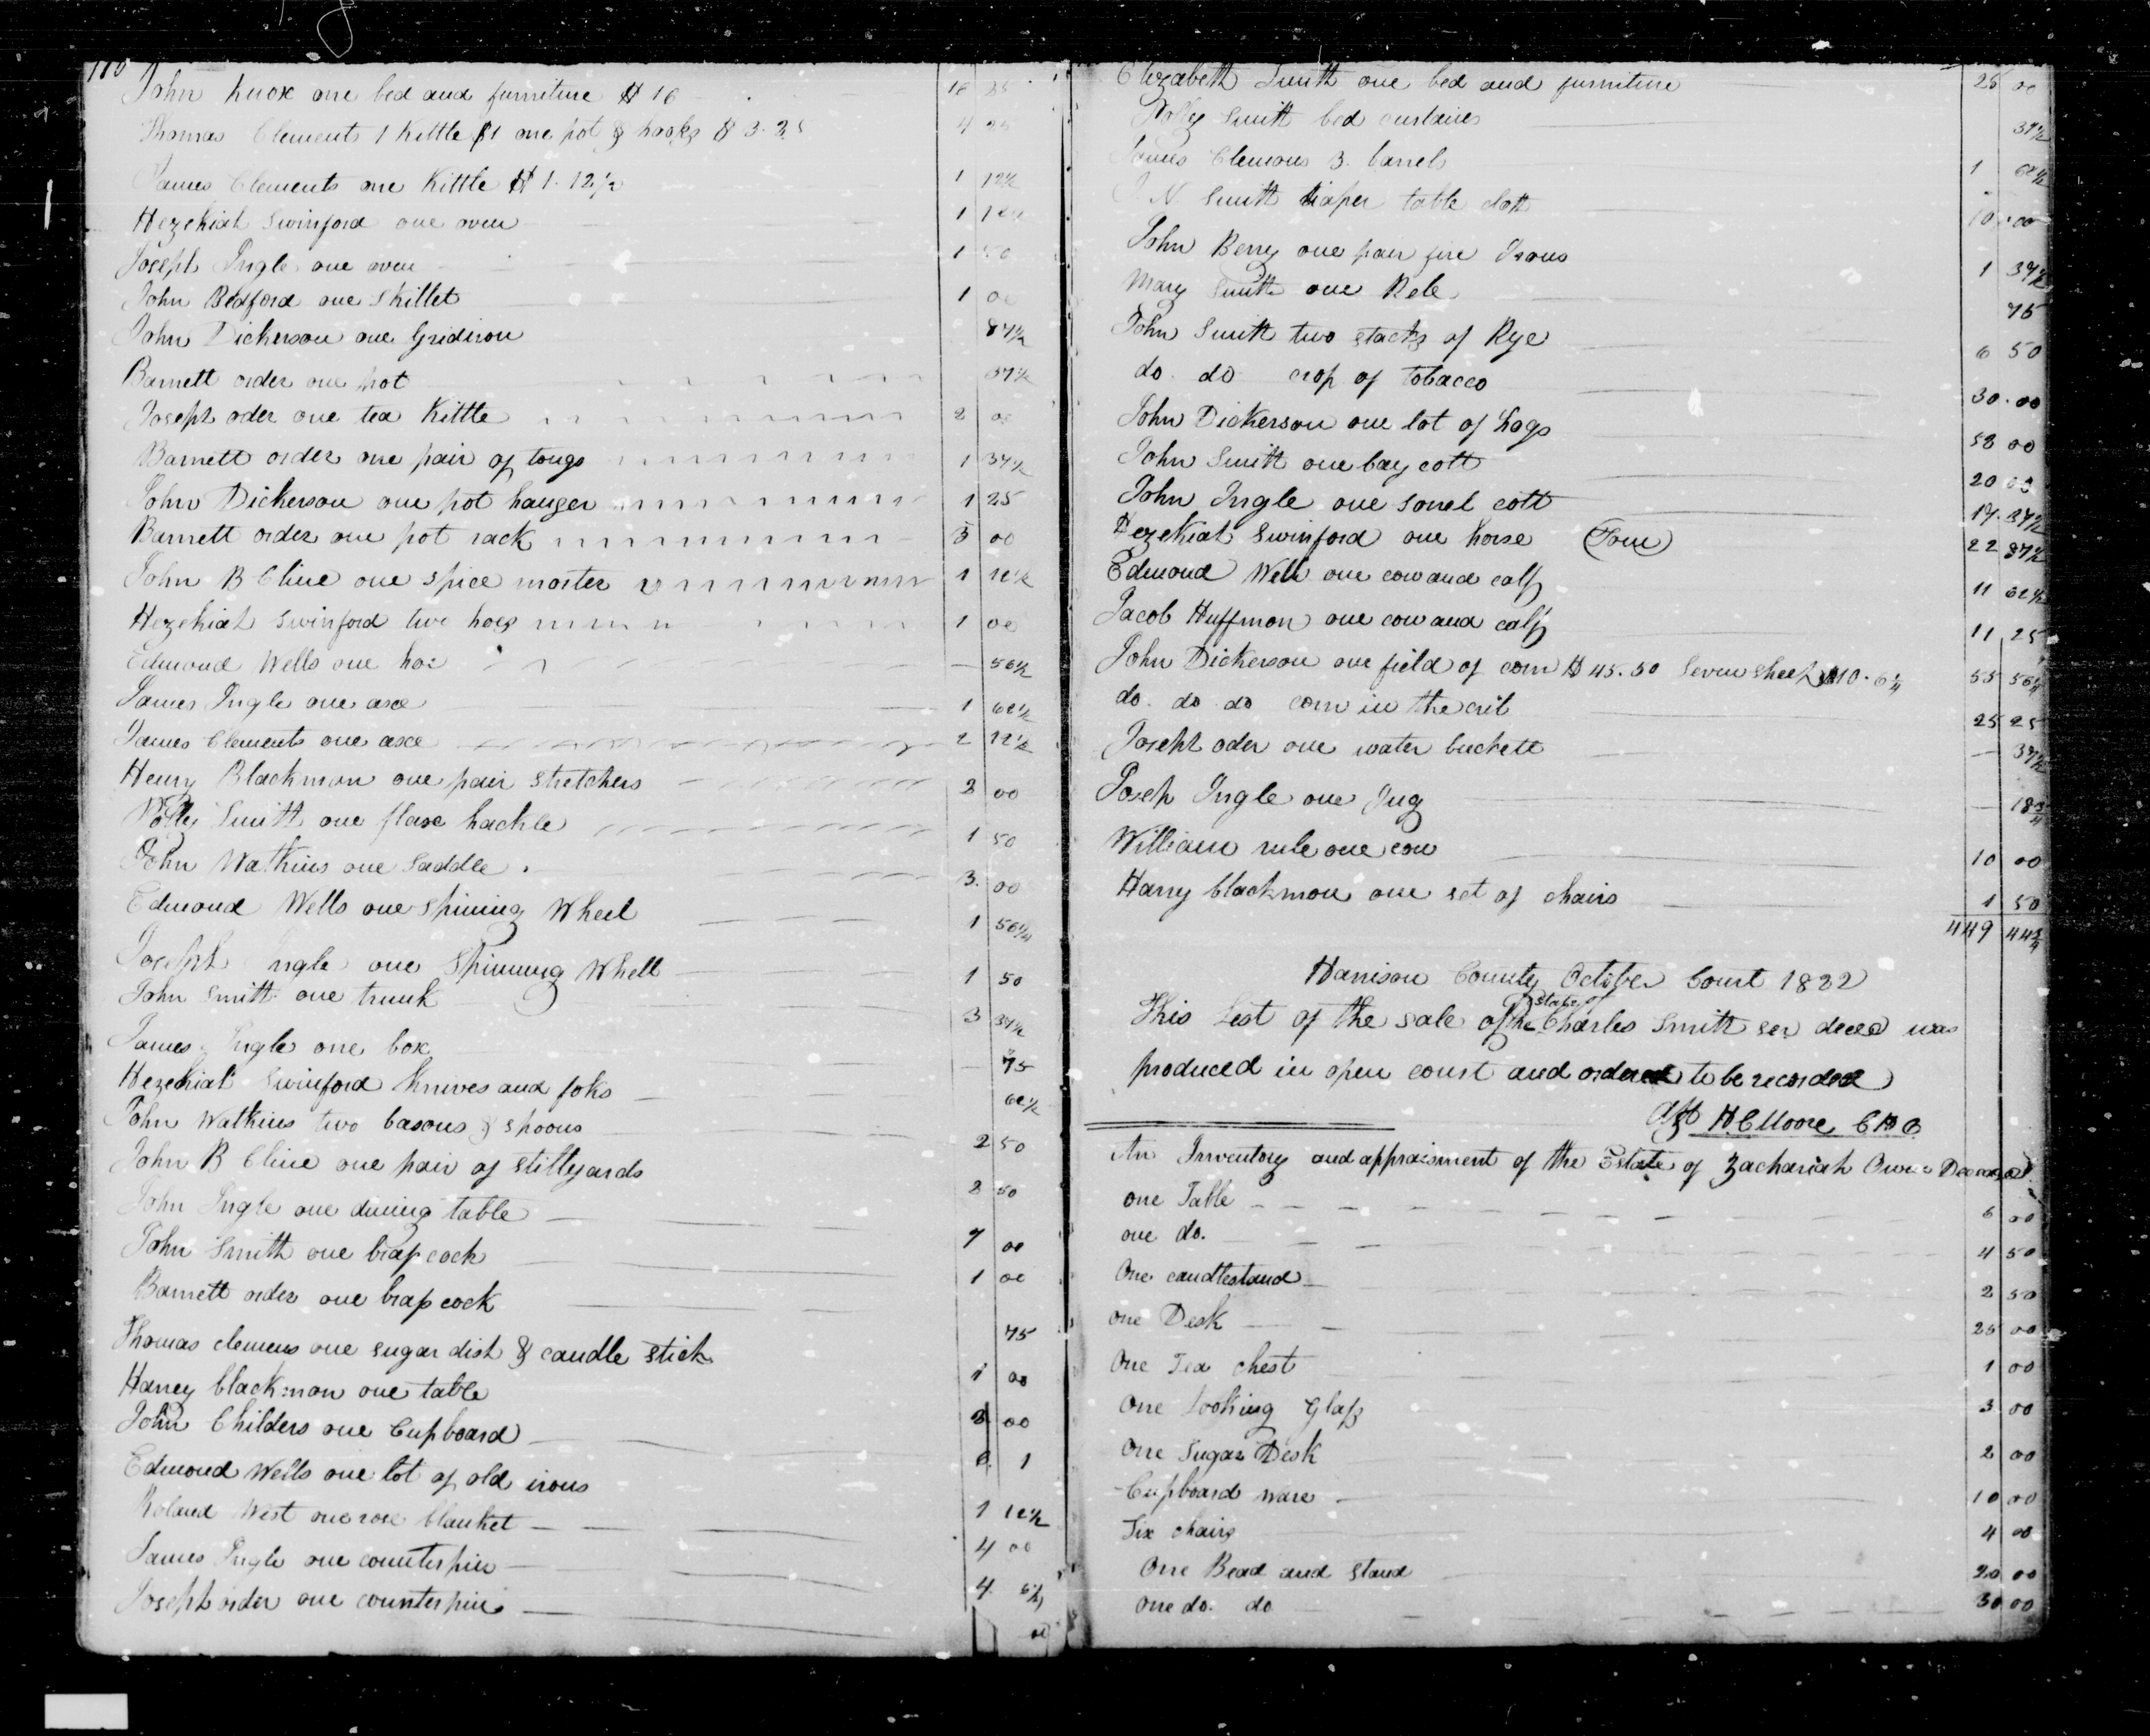 110
John Knox one bed and furniture $ 16 16 25
Thomas Clements 1 Kettle $1 one pot & hooks $ 3.25 4 25
James Clements one Kittle $ 1.12½ 1 12½
Hezekiah Swinford one oven 1 12½
Joseph Ingle one oven 1 50
John Bedford one Skillet 1 00
John Dickerson one Gridiron 87½
Barnett order one pot 37½
Joseph oder one tea Kittle 2 00
Barnett order one pair of tongs 1 37½
John Dickerson one pot hanger 1 25
Barnett order one pot rack 3 00
John B Cline one spice morter 1 12½
Hezekiah Swinford two hoes 1 00
Edmond Wells one hoe — 56½
James Ingle one axe 1 62½
James Clements one axe 2 12½
Henry Blackmon one pair Stretchers 2 00
Polly Smith one flaxe hackle 1 50
John Watkins one Saddle 3. 00
Edmond Wells one Spining Wheel 1 56¼
Joseph Ingle one Spinning Whell 1 50
John Smith one trunk 3 37½
James Ingle one box — 75
Hezekiah Swinford Knives and foks 62½
John Watkins two basons & spoons 2 50
John B Cline one pair of Stillyards 2 50
John Ingle one dining table 7 00
John Smith one brass cock 1 00
Barnett order one brass cock 75
Thomas clemens one sugar dish & candle stick 1 00
Harrey blackmon one table 3 00
John Childers one Cupboard 6 1
Edmond Wells one lot of old irons 1 12½
Roland West one rose blanket 4 00
James Ingle one counterpin 4
Joseph order one counterpin 00
Elizabeth Smith one bed and furniture 25 00
Polly Smith bed curtains 37½
James Clemons 3 barrels 1 62½
J. N. Smith diaper table cloth 10.00
John Berry one pair fire Irons 1 37½
Mary Smith one Rele 75
John Smith two stacks of Rye 6 50
do. do crop of tobacco 30.00
John Dickerson one lot of hogs 58 00
John Smith one bay colt 20 00
John Ingle one sorrel colt 17.37½
Hezekiah Swinford one horse (Tom) 22 87½
Edmond Wells one cow and calf 11 62½
Jacob Huffmon one cow and calf 11 25
John Dickerson one field of corn $ 45.50 Seven sheep $10.6¼ 55 56¼
do. do do corn in the crib 25 25
Joseph oder one water buckett — 37½
Josep Ingle one Jug — 18¾
William rule one cow 10 00
Harry blackmon one set of chairs 1 50
449 44¾
Harrison County October Court 1822
This List of the sale of the Estate of Charles Smith sen deced was
produced in open court and ordered to be recorded
Att H C Moore C H C
An Inventory and appraisment of the Estate of Zachariah Owen Deceased
one Table 6 00
one do. 4 50
One candlestand 2 50
one Desk 25 00
One Tea chest 1 00
One Looking Glass 3 00
One Sugar Desk 2 00
Cupboard ware 10 00
Six chairs 4 00
One Bead and stand 20 00
One do. do 30 00